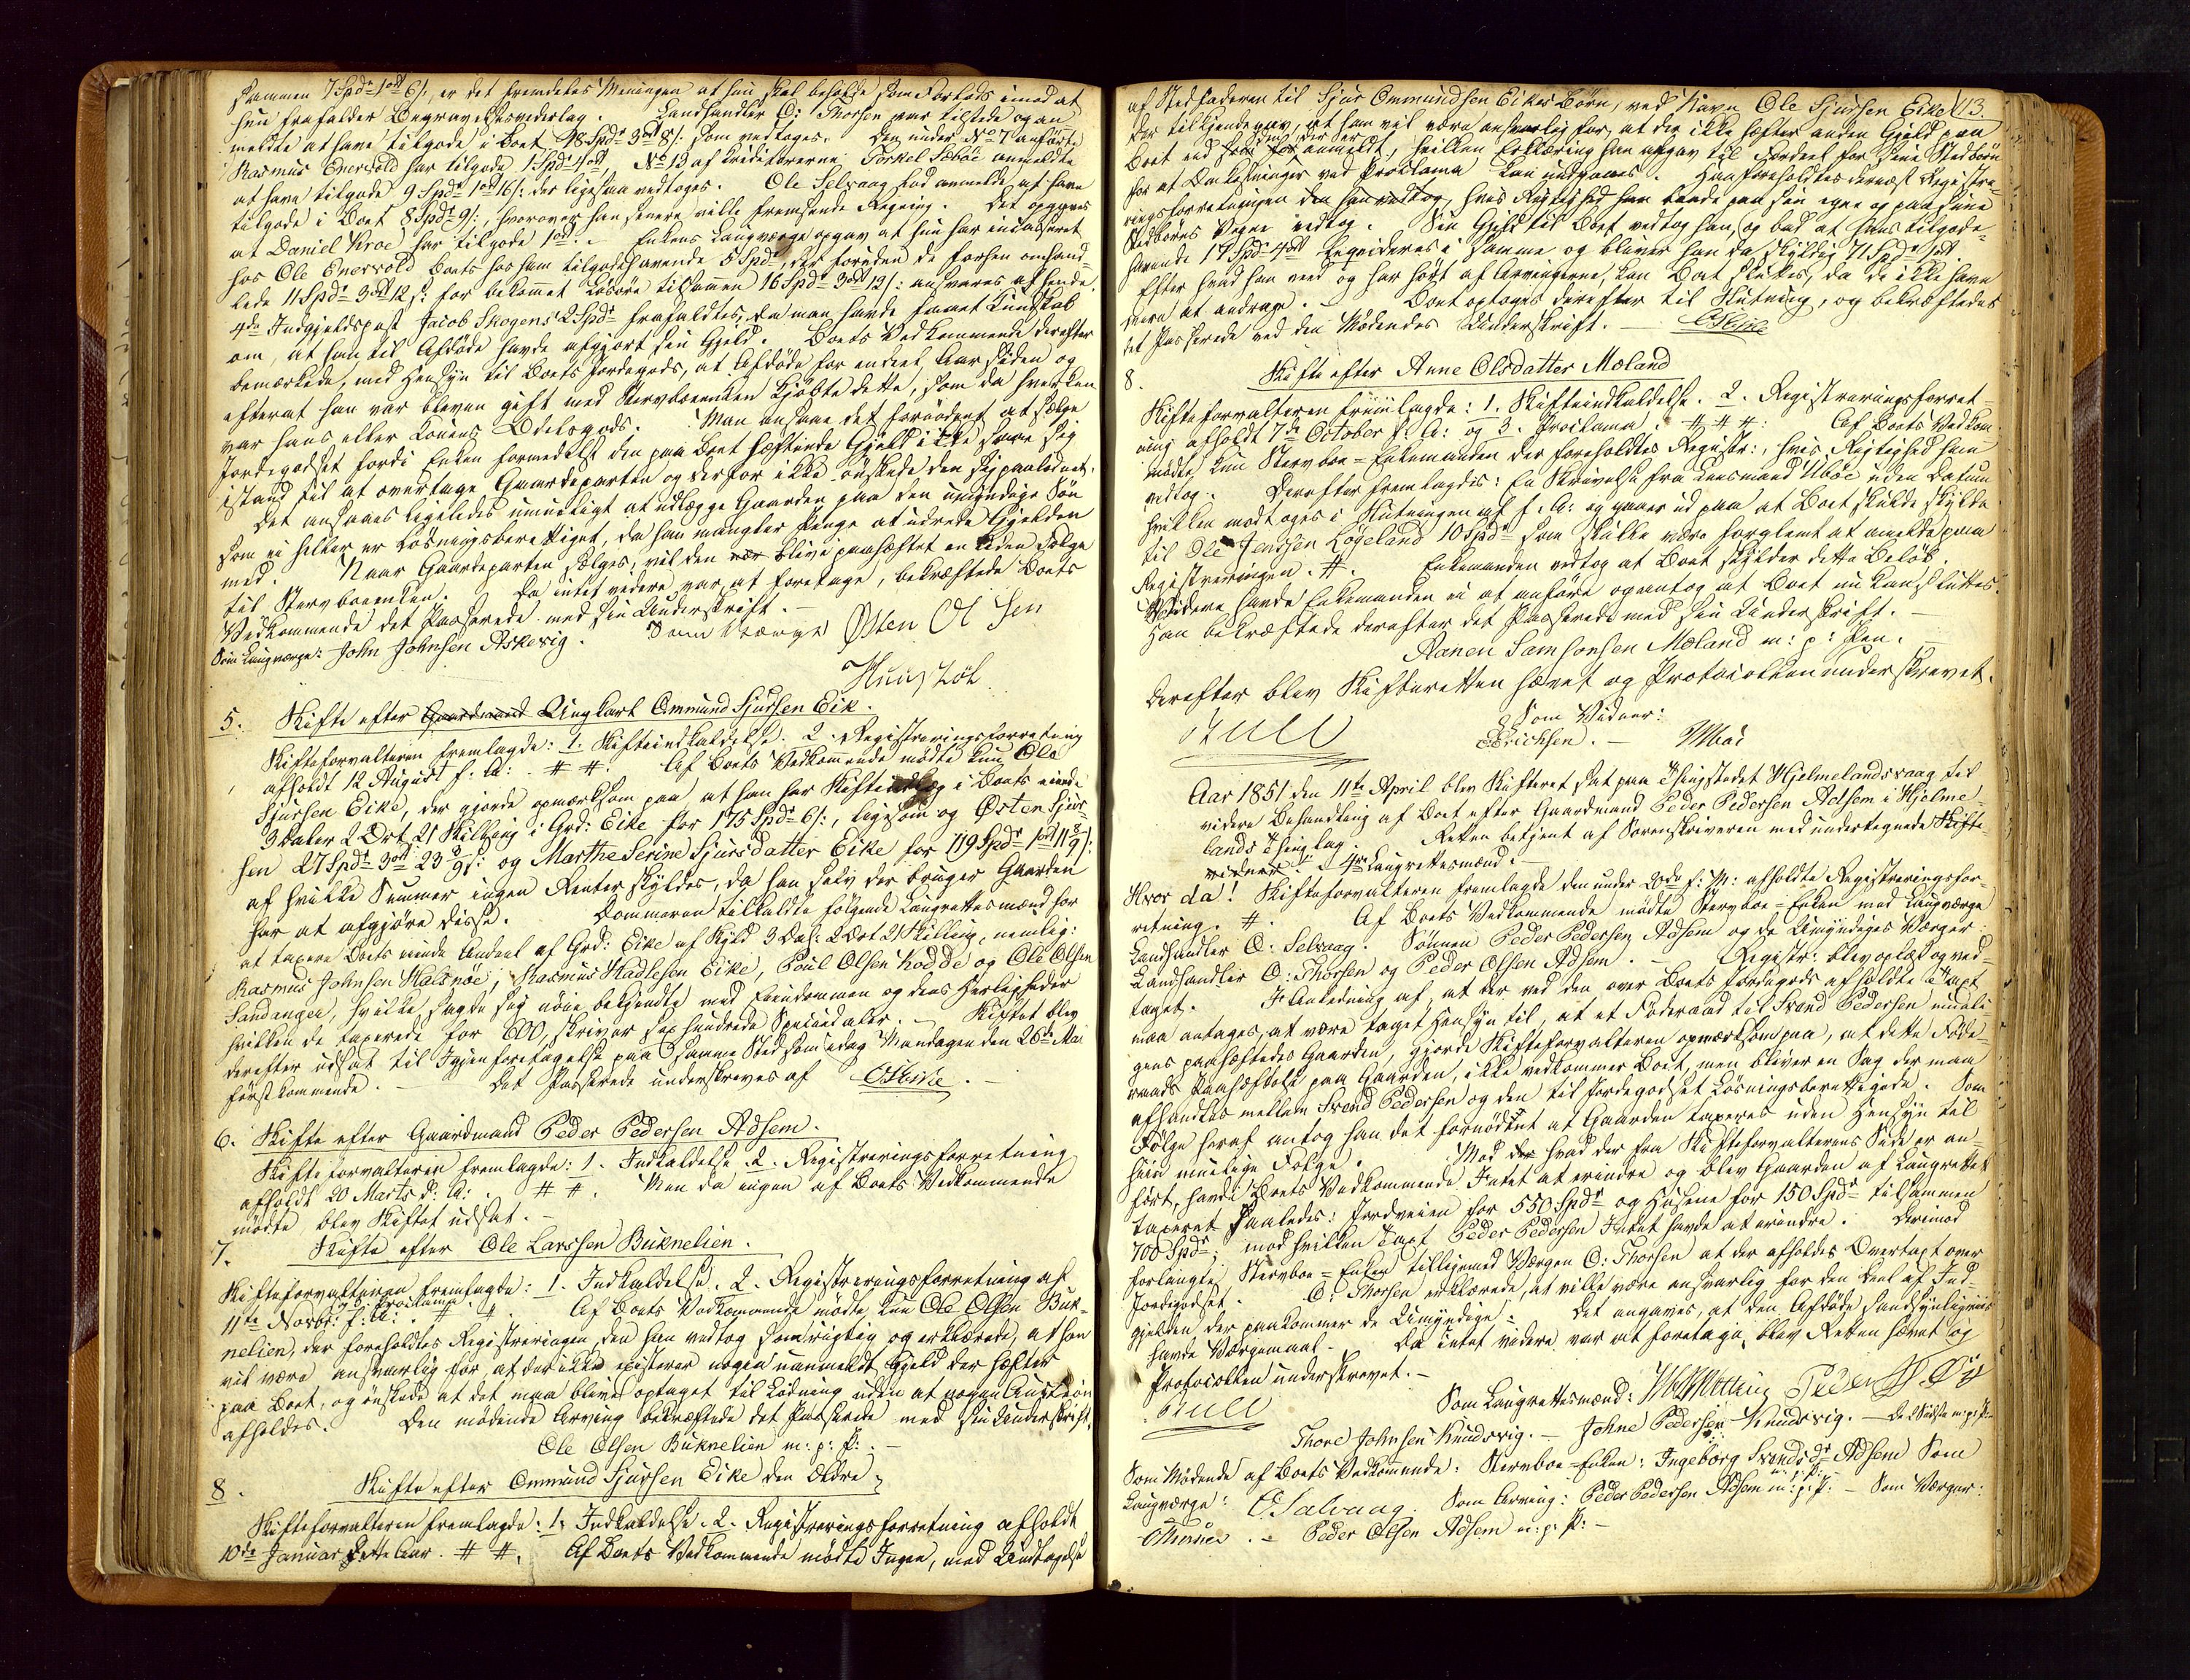 sammen 7 Spd 1 ort 6 s, er det fremdeles Meningen at hun skal beholde som Forlods imod at
hun frafalder Begravelsesvederlag. Landhandler O: Thorsen var tilstede og an
meldte at have tilgode i Boet 48 Spd 3 ort 8 s: som vedtoges. Den under No 7 anførte
Rasmus Enersvold har tilgode 1 Spd 1 ort No 13 af Creditorerne Torkel Sæbøe anmeldte
at have tilgode 9 Spd 1 ort 16 s: der ligesaa vedtoges. Ole Selvaag lod anmelde, at have
tilgode i Boet 8 Spd 9 s:, hvorover han senere ville fremsende Regning. Det opgaves
at Daniel Kroe har tilgode 1 ort. Enkens Laugværge opgav at hun har incasseret
hos Ole Enersvold Boets hos ham tilgodehavende 5 Spd, der foruden de forhen omhand-
lede 11 Spd 3 ort 12 s: for bekommet Løsøre tilsammen 16 Spd 3 ort 12 s: ansvares af hende.
4de Indgjeldspost Jacob Skogens 2 Spd frafaldtes, da man havde faaet Kundskab
om, at han til Afdøde havde afgjort sin Gjeld. Boets Vedkommende derefter
bemærkede, med Hensyn til Boets Jordegods, at Afdøde for endeel Aar siden og
efterat han var bleven gift med Stervboeenken kjøbte dette, som da hverken
var hans eller Konens Odelsgods. Man ansaae det fornødent at sælge
Jordegodset fordi Enken formedelst den paa Boet heftende Gjeld ikke saae sig
istand til at overtage Gaardeparten og derfor ikke ønskede den sig paalodnet.
Det ansaaes ligeledes umueligt at udlægge Gaarden paa den umyndige Søn
som ei heller er Løsningsberettiget, da han mangler Penge at udrede Gjelden
med. Naar Gaardeparten sælges, vil den blive paaheftet en liden Følge
til Stervboeenken. Da intet videre var at foretage, bekræftede Boets
Vedkommende det Passerede med sin Underskrift.
Som Laugværge: John Johnsen Askevig. Som Værge Østen Ol Sen
5. Skifte efter Gaardmand Ungkarl Ommund Sjursen Eik.
Skifteforvalteren fremlagde: 1. Skifteindkaldelse. 2. Registreringsforretning
afholdt 12 August f. A: # #. Af Boets Vedkommende mødte kun Ole
Sjursen Eike, der gjorde opmærksom paa at han har Skifteudlæg i Boets eiende
3 Daler 2 Ort 21 Skilling i Grd: Eike for 175 Spd 6 s:, ligesom og Østen Sjur-
sen 27 Spd 3 ort 23 8/9 s: og Marthe Serine Sjursdatter Eike for 119 Spd 1 ort 11 8/9 s:
af hvilke Summer ingen Renter skyldes, da han selv der bruger Gaarden
har at afgjøre disse. Dommeren tilkaldte følgende Laugrettesmænd for
at taxere Boets eiende Andeel af Grd: Eike af Skyld 3 Dal: 2 Ort 21 Skilling, nemlig:
Rasmus Johnsen Halsnøe, Rasmus Hadlesen Eike, Poul Olsen Kodde og Ole Olsen
Sandanger, hvilke, sagde sig nøie bekjendte med Eiendommen og dens Herligheder
hvilken de taxerede for 600, skriver sex hundrede Speciedaler. Skiftet blev
derefter udsat til Igjenforetagelse paa samme Sted som idag Mandagen den 26de Mai
førstkommende. Det Passerede underskreves af OSEike.
6. Skifte efter Gaardmand Peder Pedersen Adsem.
Skifteforvalteren fremlagde: 1. Indkaldelse. 2. Registreringsforretning
afholdt 20 Marts d: A: # #. Men da ingen af Boets Vedkommende
mødte, blev Skiftet udsat.
7. Skifte efter Ole Larssen Buknelien.
Skifteforvalteren fremlagde: 1. Indkaldelse. 2. Registreringsforretning af
11te Novbr: f: A: og 3. Proclama # #. Af Boets Vedkommende mødte kun Ole Olsen Buk-
nelien, der foreholdtes Registreringen, den han vedtog som rigtig og erklærede, at han
vil være ansvarlig for at der ikke existerer nogen uanmeldt Gjeld der hefter
paa Boet, og ønskede at det maa blive optaget til Lodning uden at nogen Auction
afholdes. Den mødende Arving bekræftede det Passerede med sin Underskrift.
Ole Olsen Buknelien m: p: P:
8. Skifte efter Ommund Sjursen Eike den Ældre.
Skifteforvalteren fremlagde: 1. Indkaldelse. 2. Registreringsforretning afholdt
10de Januar dette Aar. # #. Af Boets Vedkommende mødte Ingen, med Undtagelse
af Stedfaderen til Sjur Ommundsen Eikes Børn, ved Navn Ole Sjursen Eike 113.
der tilkjendegav, at han vil være ansvarlig for, at der ikke hæfter anden Gjeld paa
Boet end der er anmeldt, hvilken Erklæring han afgav til Fordeel for sine Stedbørn
for at Bekostninger ved Proclama kan undgaaes. Han foreholdtes dernæst Registre-
ringsforretningen den han vedtog, hvis Rigtighed han baade paa sin egne og paa sine
Stedbørns Vegne vedtog. Sin Gjeld til Boet vedtog han, og bad at hans tilgode-
havende 17 Spd 4 ort liqvideres i samme og bliver han da skyldig 71 Spd 1 ort.
Efter hvad han veed og har hørt af Arvingerne, kan Boet sluttes, da de ikke have
mere at andrage. Boet optoges derefter til Slutning, og bekræftedes
det Passerede ved den Mødendes Underskrift. OSEike
8. Skifte efter Anne Olsdatter Moland
Skifteforvalteren fremlagde: 1. Skifteindkaldelse. 2. Registreringsforret-
ning afholdt 7de October f. A: og 3. Proclama. # # #: Af Boets Vedkom-
mødte kun Stervboe-Enkemanden der foreholdtes Registr:, hvis Rigtighed han
vedtog. Derefter fremlagdes: En Skrivelse fra Lensmand Ubøe uden Datum
hvilken modtoges i Slutningen af f. A: og gaaer ud paa at Boet skulde skylde
til Ole Jensen Løgeland 10 Spd som skulle være forglemt at anmeldes paa
Registreringen. #. Enkemanden vedtog at Boet skylder dette Beløb.
Videre havde Enkemanden ei at anføre og antog at Boet nu kan sluttes.
Han bekræftede derefter det Passerede med sin Underskrift.
Aanen Samsonsen Moland m: p: Pen.
Derefter blev Skifteretten hævet og Protocollen underskrevet.
Som Vidner:
Erichsen.
Aar 1851 den 11te April blev Skifteret sat paa Thingstedet Hjelmelandsvaag til
videre Behandling af Boet efter Gaardmand Peder Pedersen Adsem i Hjelme-
lands Thinglag. Retten betjent af Sorenskriveren med undertegnede Skifte
vidner. 4re Laugrettesmænd.
Hvor da! Skifteforvalteren fremlagde den under 20de f: M: afholdte Registreringsfor-
retning. #. Af Boets Vedkommende mødte Stervboe-Enken med Laugværge
Landhandler O: Selvaag. Sønnen Peder Pedersen Adsem og de Umyndiges Værger
Landhandler O: Thorsen og Peder Olsen Adsem. Registr: blev oplæst og ved-
taget. I Anledning af, at der ved den over Boets Jordegods afholdte Taxt
maa antages, at være taget Hensyn til, at et Føderaad til Svend Pedersen mueli-
gens paaheftedes Gaarden, gjorde Skifteforvalteren opmærksom paa, at dette Føde-
raads Paaheftelse paa Gaarden, ikke vedkommer Boet, men bliver en Sag der maa
afhandles mellem Svend Pedersen og den til Jordegodset Løsningsberettigede. Som
Følge heraf antog han det fornødent at Gaarden taxeres uden Hensyn til
hiin muelige Følge. Mod hvad der fra Skifteforvalterens Side er an-
ført, havde Boets Vedkommende Intet at erindre og blev Gaarden af Laugrettet
taxeret saaledes: Jordveien for 550 Spd og Husene for 150 Spd tilsammen
700 Spd; mod hvilken Taxt Peder Pedersen Intet havde at erindre. Derimod
forlangte Stervboe-Enken tilligemed Værgen O: Thorsen at der afholdes Overtaxt over
Jordegodset. O: Thorsen erklærede, at ville være ansvarlig for den Deel af Ind-
gjelden der paakommer de Umyndige. Det angaves, at den Afdøde sandsynligviis
havde Værgemaal. Da intet videre var at foretage, blev Retten hævet og
Protocollen underskrevet.
Som Laugrettesmænd:
Thore Johnsen Knudsvig. Johne Pedersen Knudsvig. De 2 Sidste m: p: P:
Som Mødende af Boets Vedkommende: Stervboe-Enken: Ingeborg Svendsdr Adsem m: p: P: Som
Laugværge: OSelvaag. Som Arving: Peder Pedersen Adsem m: p: P: Som Værger:
OThorsen. Peder Olsen Adsem m: p: P: